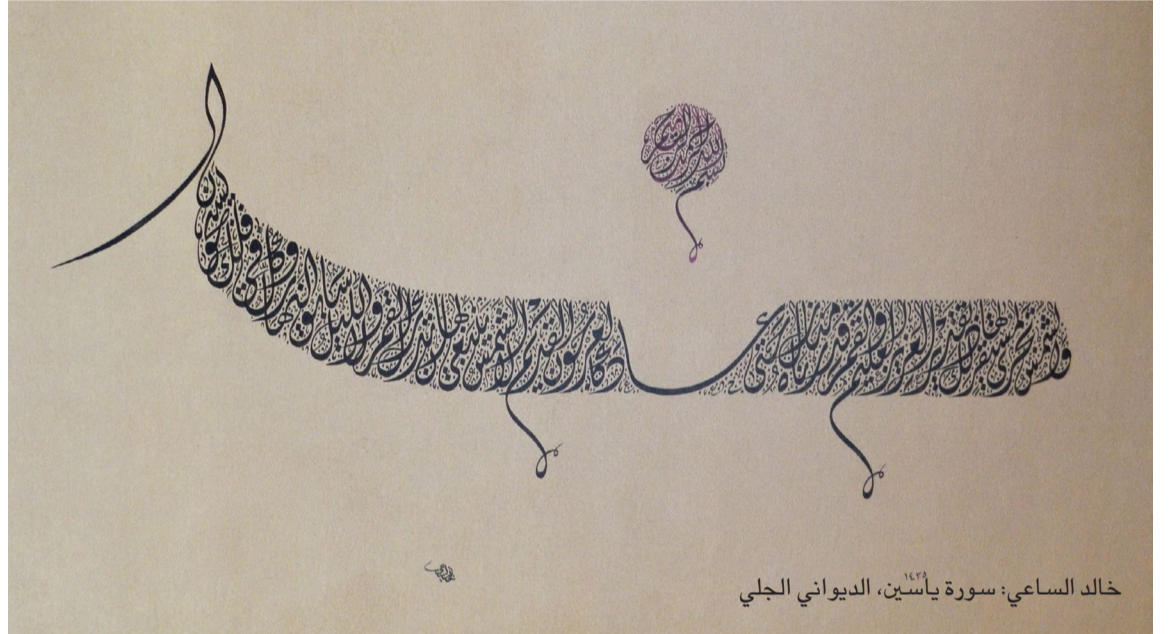 بسم الله الرحمن الرحيم
والشمس تجري لمستقر لها ذلك تقدير العزيز العليم والقمر قدرناه منازل حتى عاد كالعرجون القديم لا الشمس ينبغي لها أن تدرك القمر ولا الليل سابق النهار وكل في فلك يسبحون
خالد الساعي: سورة ياسين، الديواني الجلي